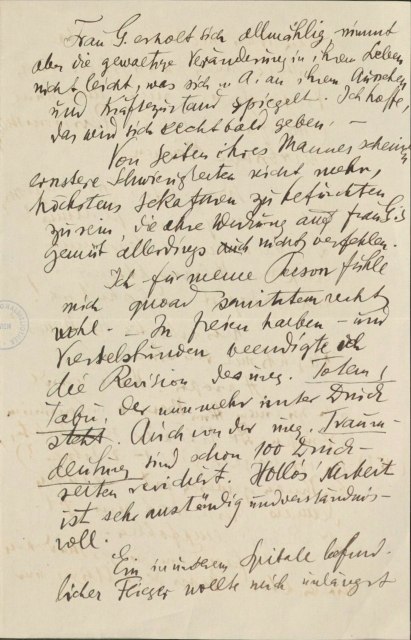 Frau G. erholt sich allmählig, nimmt
aber die gewaltige Veränderung in ihrem Leben
nicht leicht, was sich u. A. an ihrem Aussehen
und Kräftezustand spiegelt. Ich hoffe,
das wird sich recht bald geben. —
Von Seiten ihres Mannes scheinen
ernstere Schwierigkeiten nicht mehr,
höchstens Sekaturen zu befürchten
zu sein, die ihre Wirkung auf Frau G.'s
Gemüt allerdings nicht verfehlen.
Ich für meine Person fühle
mich quoad sanitatem recht
wohl. — In freien halben – und
Viertelstunden beendigte ich
die Revision des ung. Totem,
Tabu, der nunmehr unter Druck
steht. Auch von der ung. Traum-
deutung sind schon 100 Druck-
seiten revidiert. Hollós' Arbeit
ist sehr anständig und verständnis-
voll.
Ein in unserem Spitale befind-
licher Flieger wollte mich unlängst